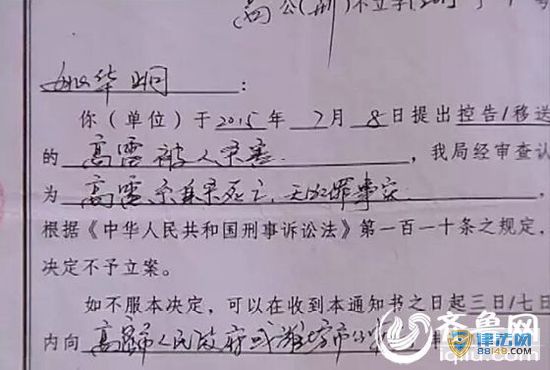 高公(刑)不立字
华：
你（单位）于2015年7月8日提出控告/移送
的高雷被人杀害.，我局经审查认
为高雷系自杀死亡、无犯罪事实，
根据《中华人民共和国刑事诉讼法》第一百一十条之规定，
决定不予立案。
如不服本决定，可以在收到本通知书之日起三日/七日
内向高密市人民政府或潍坊市公
齐鲁网
律法网